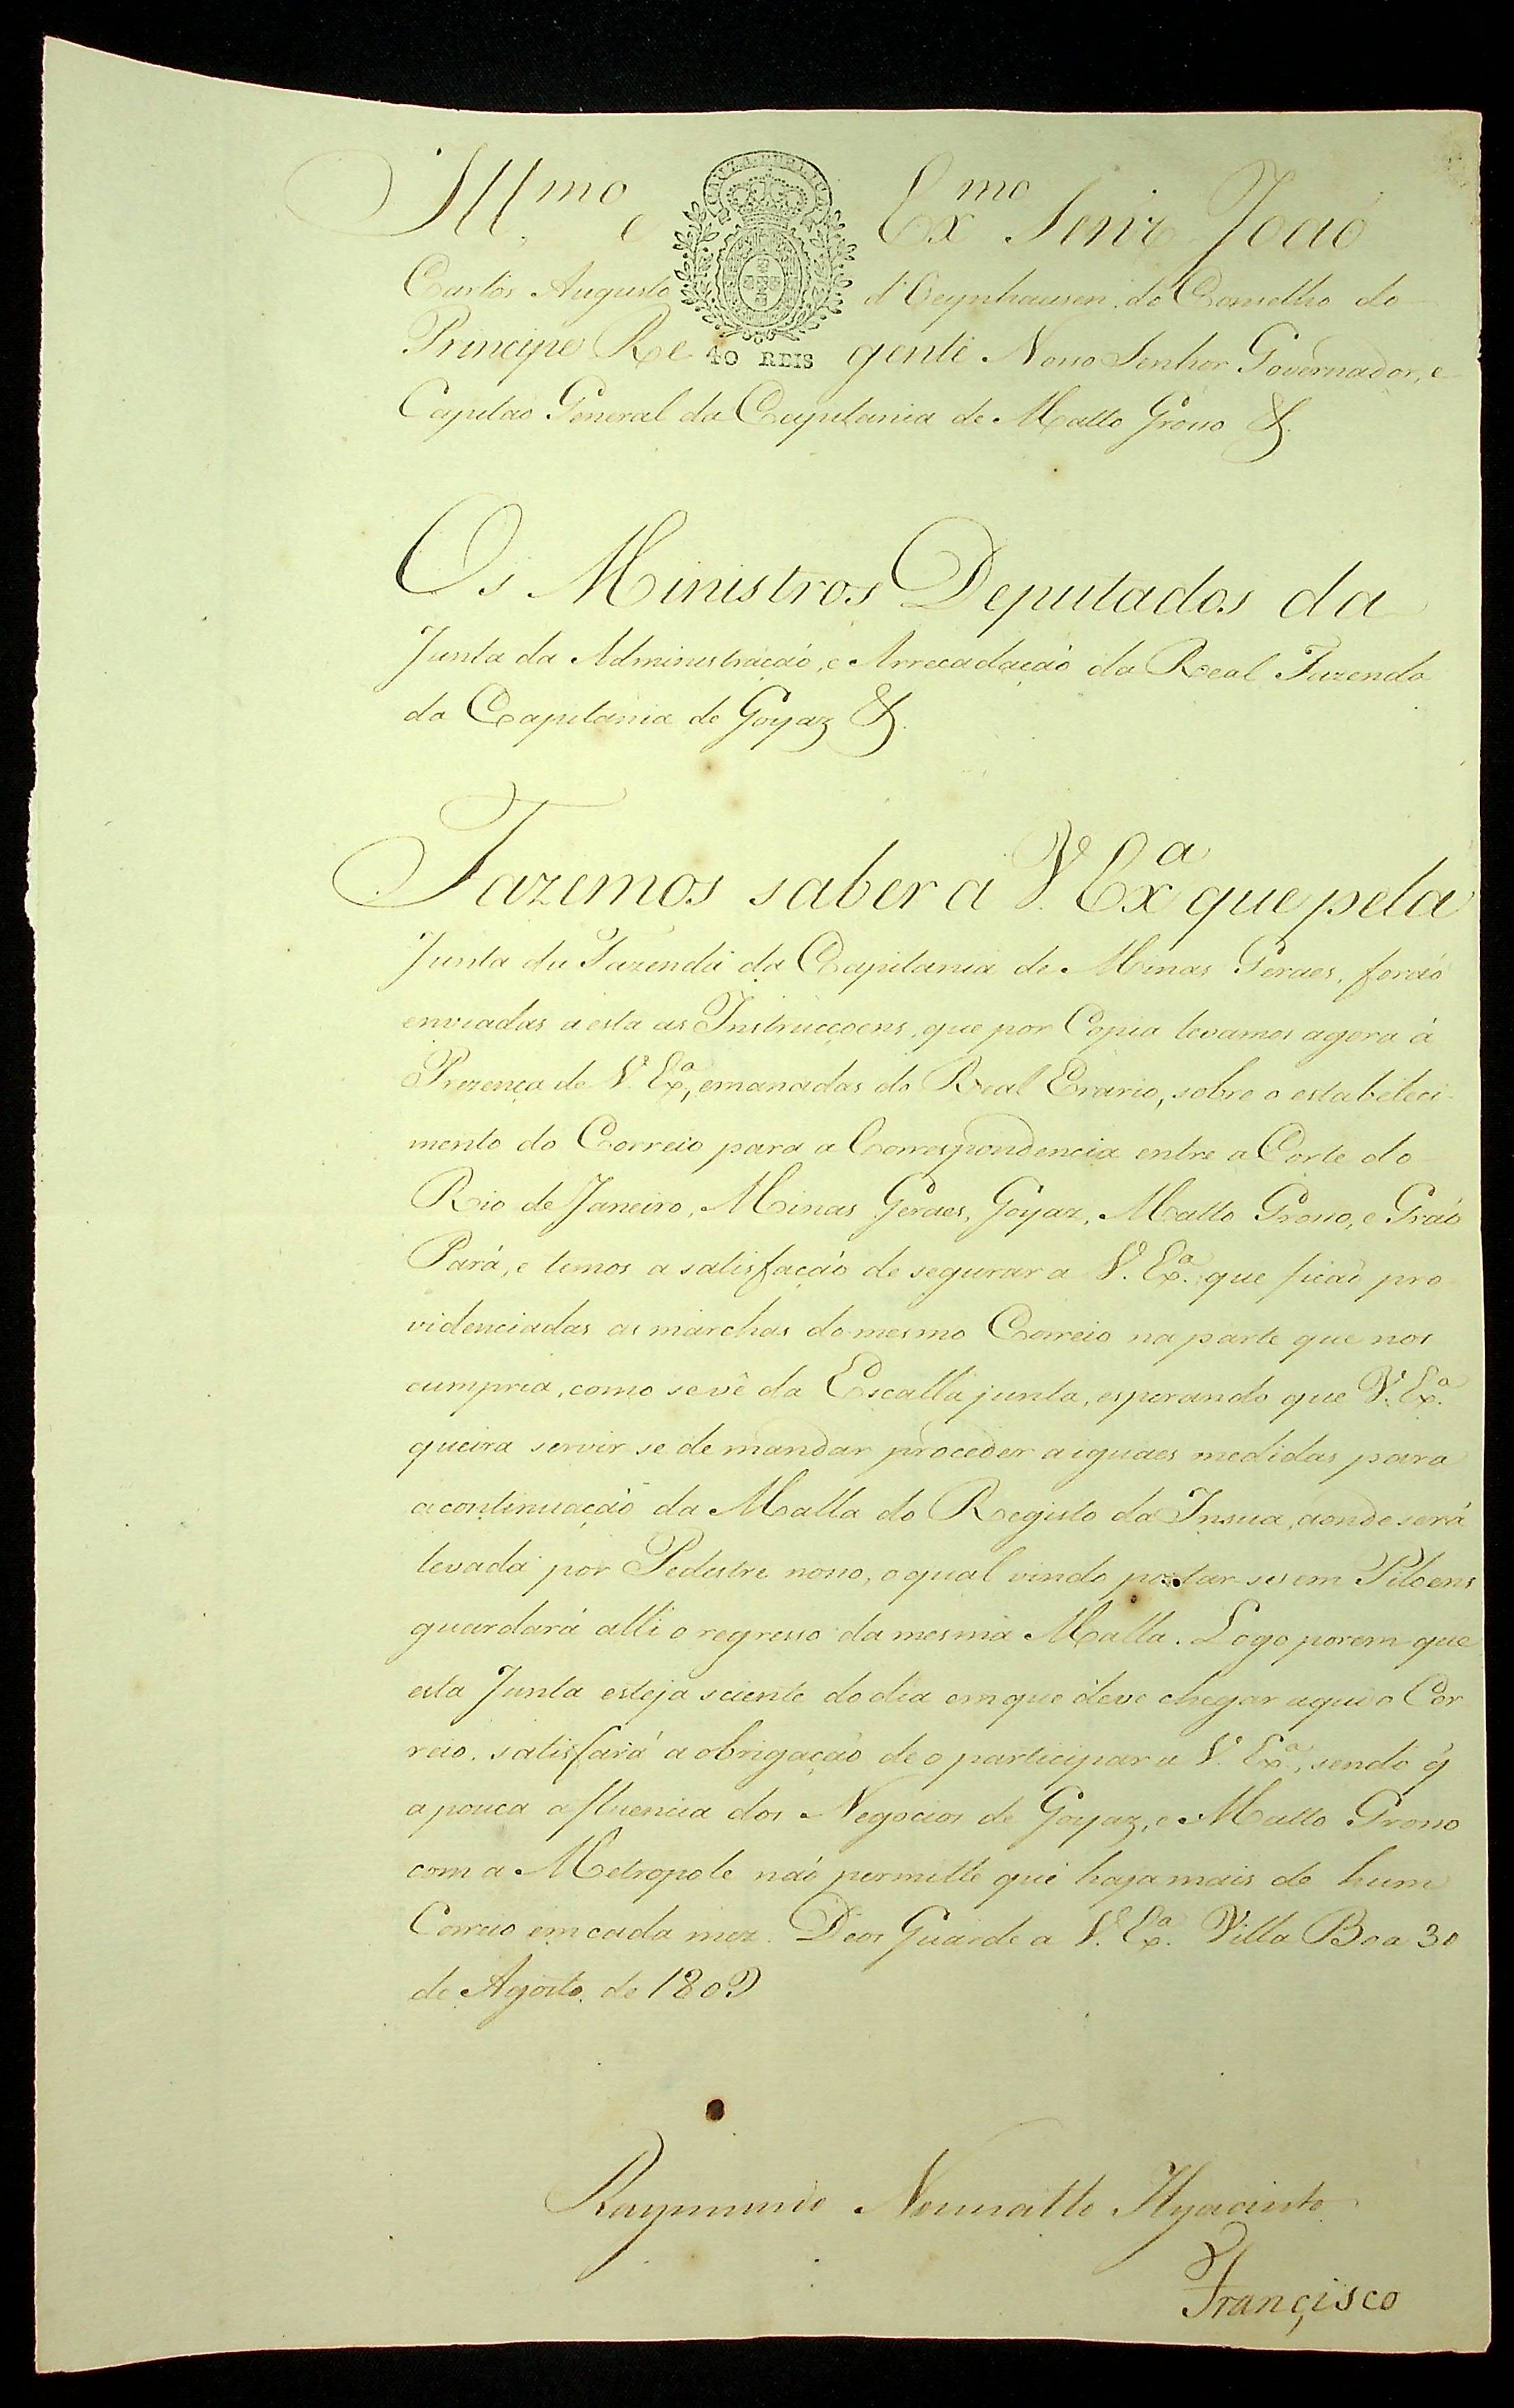 Ill.mo e Ex.mo Senr. João
CAUZA PUBLICA
Carlos Augusto d'Oeynhausen, do Conselho do
Principe Re gente Nosso Senhor Governador, e
40 REIS
Capitão General da Capitania de Matto Grosso &.
Os Ministros Deputados da
Junta da Administração, e Arrecadação da Real Fazenda
da Capitania de Goyaz &.
Fazemos saber a V. Ex.a que pela
Junta da Fazenda da Capitania de Minas Geraes, forão
enviadas a esta as Instrucçoens, que por Copia levamos agora á
Prezença de V. Ex.a, emanadas do Real Erario, sobre o estabeleci-
mento do Correio para a Correspondencia entre a Corte do
Rio de Janeiro, Minas Geraes, Goyaz, Matto Grosso, e Grão
Pará, e temos a satisfação de segurar a V. Ex.a que ficão pro
videnciadas as marchas do mesmo Correio na parte que nos
cumpria, como se vê da Escalla junta, esperando que V. Ex.a
queira servir se de mandar proceder a iguaes medidas para
a continuação da Malla do Registo da Insua, aonde será
levada por Pedestre nosso, o qual vindo postar-se em Piloens
guardará alli o regresso da mesma Malla. Logo porem que
esta Junta esteja sciente do dia em que deve chegar aqui o Cor
reio, satisfará a obrigação de o participar a V. Ex.a, sendo q̃
a pouca afluencia dos Negocios de Goyaz, e Matto Grosso
com a Metropole não permitte que haja mais de hum
Correio em cada mez. Deos Guarde a V. Ex.a Villa Boa 30
de Agosto de 1809
Raymundo Nonnatto Hyacinto
Francisco